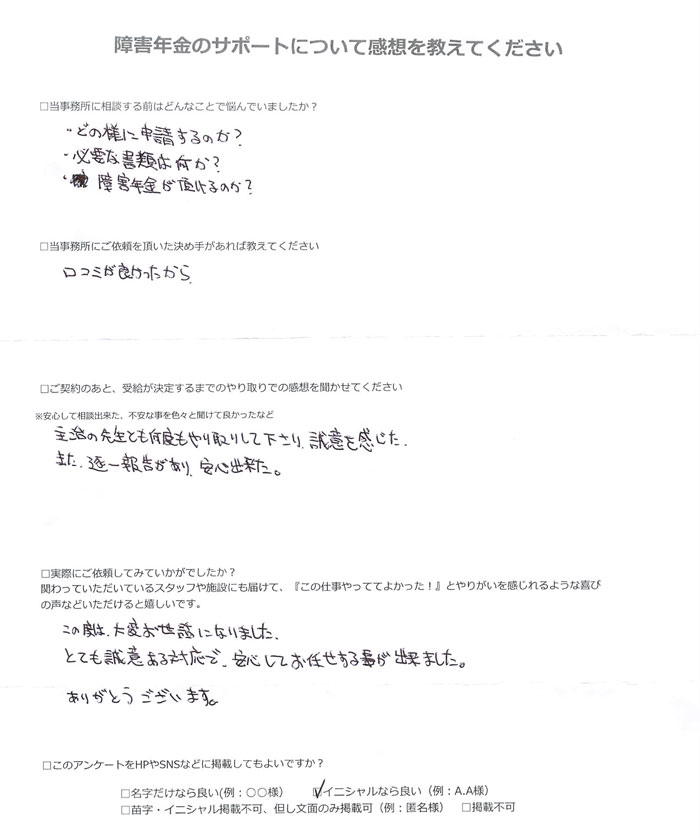 障害年金のサポートについて感想を教えてください
□当事務所に相談する前はどんなことで悩んでいましたか？
・どの様に申請するのか？
・必要な書類は何か？
・障害年金が頂けるのか？
□当事務所にご依頼を頂いた決め手があれば教えてください
口コミが良かったから、
□ご契約のあと、受給が決定するまでのやり取りでの感想を聞かせてください
※安心して相談出来た、不安な事を色々と聞けて良かったなど
主治の先生とも何度もやり取りして下さり、誠意を感じた。
また、逐一報告があり、安心出来た。
□実際にご依頼してみていかがでしたか？
関わっていただいているスタッフや施設にも届けて、『この仕事やっててよかった！』とやりがいを感じれるような喜び
の声などいただけると嬉しいです。
この度は、大変お世話になりました。
とても誠意ある対応で、安心してお任せする事が出来ました。
ありがとうございます。
□このアンケートをHPやSNSなどに掲載してもよいですか？
□名字だけなら良い(例：〇〇様） ☑イニシャルなら良い（例：A.A様）
□苗字・イニシャル掲載不可、但し文面のみ掲載可（例：匿名様） □掲載不可